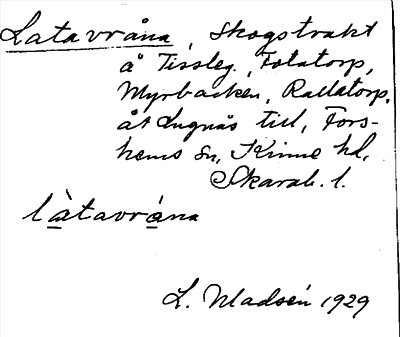 Latavråna, Skogstrakt
å Tissleg. Totatorp,
Myrbacken, Rallatorp,
åt Lugnås till, Fors-
hems sn, Kinne hd,
Skarab. l.
làtavràna
L. Madsén 1929